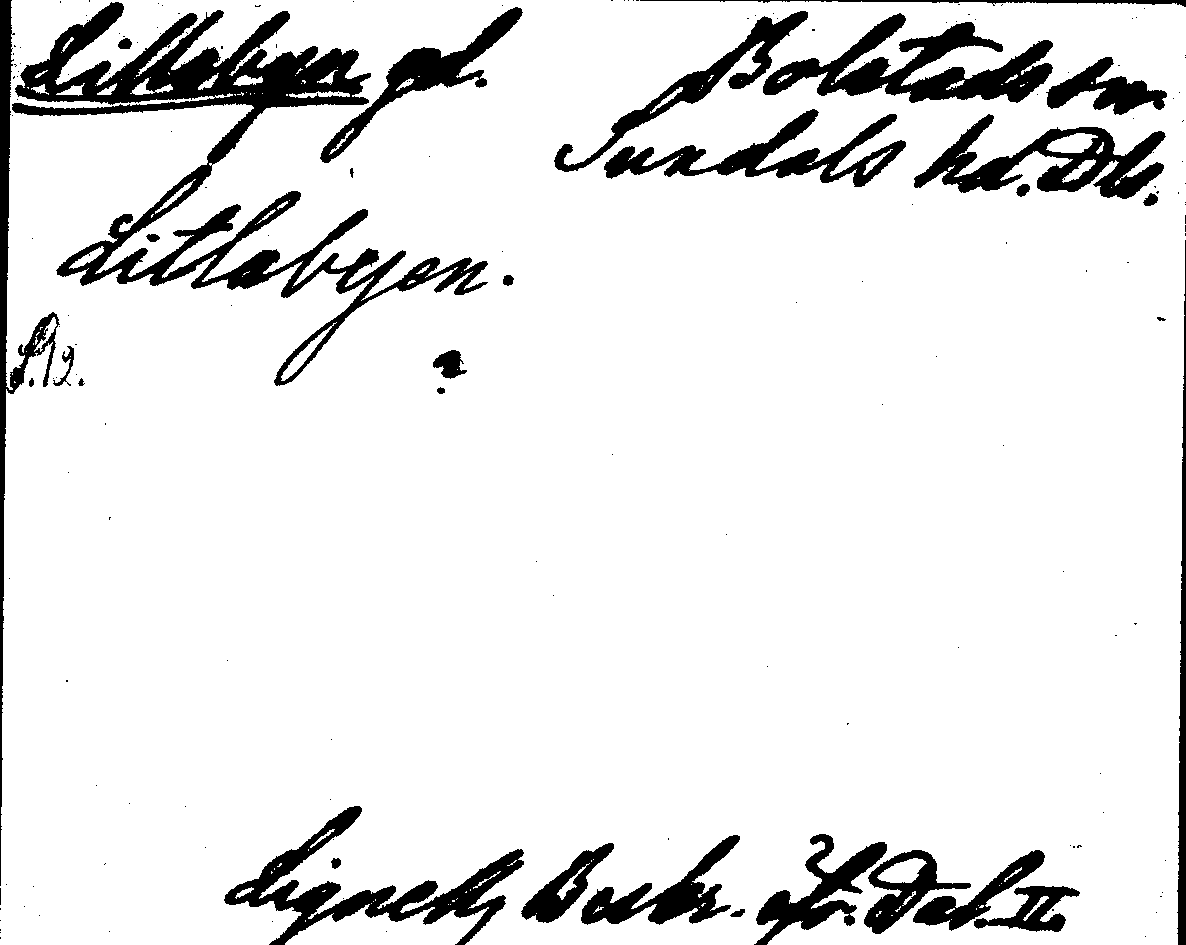 Lillebyn gd. Bolstads sn.
Sundals hd. Dls.
Litlabyen.
S. 92.
?
Lignell, Beskr. öfv. Dal. II.